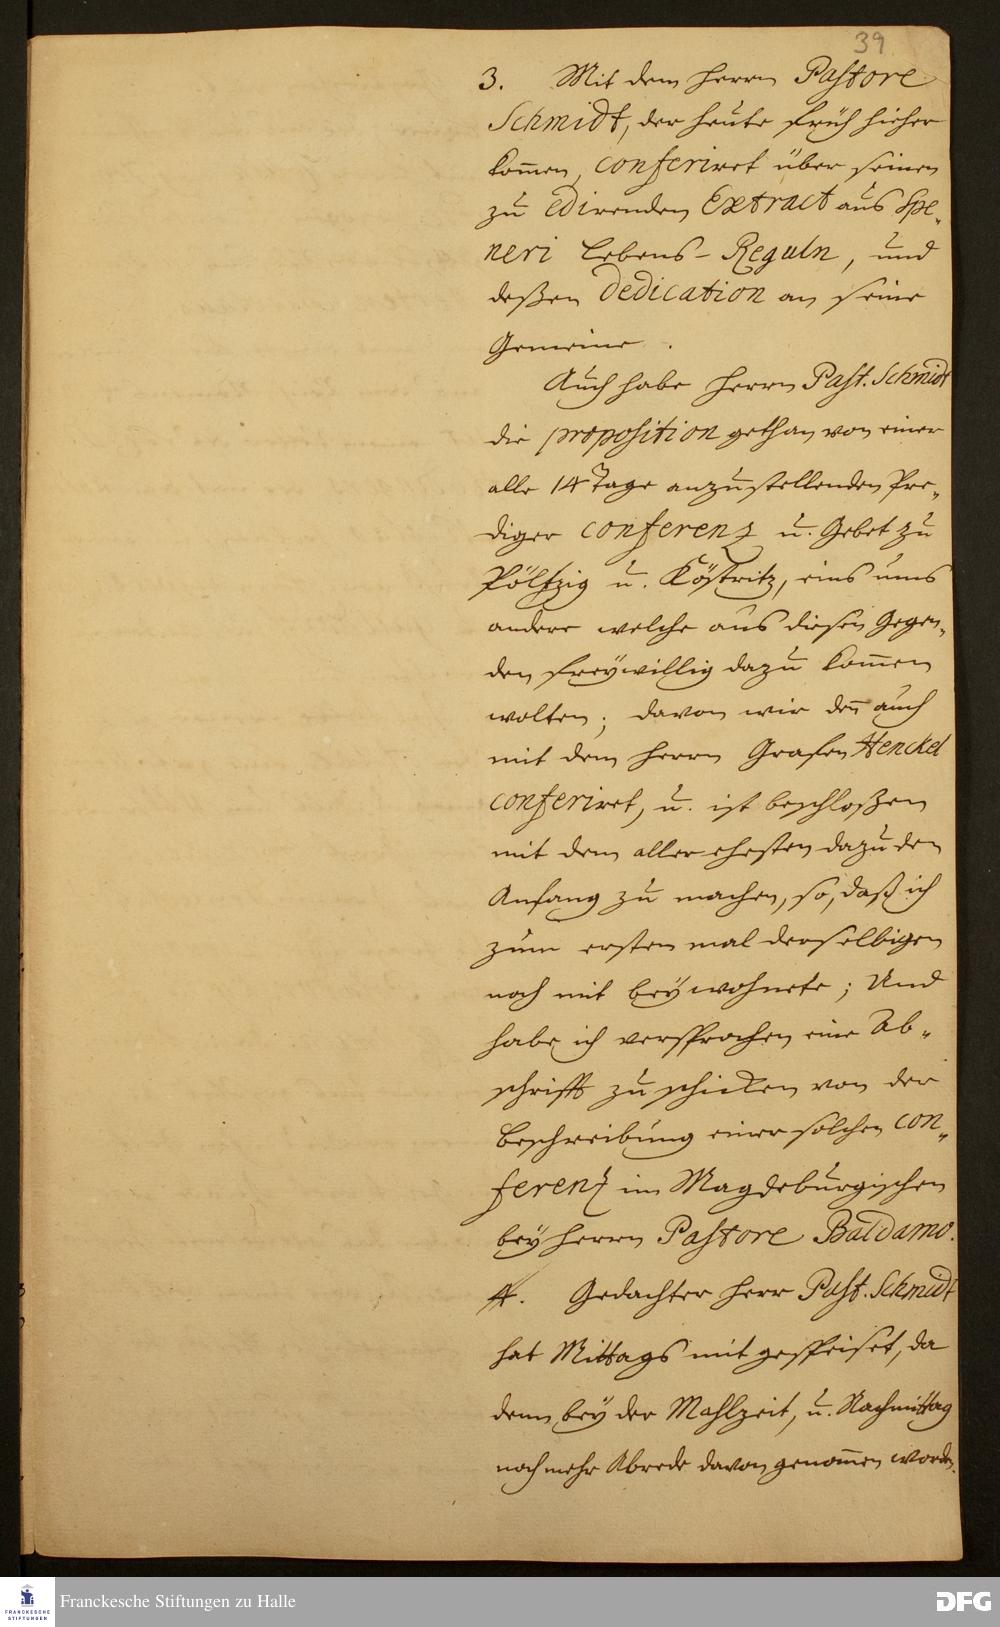 39
3. Mit dem Herrn Pastore
Schmidt, der heute früh hieher
kom̄en, conferiret über seinen
zu edirenden Extract aus Spe-
neri Lebens-Reguln, und
deßen Dedication an seine
Gemeine.
Auch habe Herrn Past. Schmidt
die proposition gethan von einer
alle 14 Tage anzustellenden Pre-
diger conferenz u. Gebet zu
Pöltzig u. Köstritz, eins ums
andere welche aus diesen Gegen-
den freÿwillig dazu kom̄en
wolten; davon wir den̄ auch
mit dem Herrn Grafen Henckel
conferiret, u. ist beschloßen
mit dem aller ehesten dazu den
Anfang zu machen, so, daß ich
zum ersten mal derselbigen
noch mit beÿwohnete; Und
habe ich versprochen eine Ab-
schrifft zu schicken von der
Beschreibung einer solchen con-
ferenz im Magdeburgischen
beÿ Herrn Pastore Baldamo.
4. Gedachter Herr Past. Schmidt
hat Mittags mit gespeiset, da
denn beÿ der Mahlzeit, u. Nachmittag
noch mehr Abrede davon genom̄en worden.
FRANCKESCHE
STIFTUNGEN
Franckesche Stiftungen zu Halle
DFG